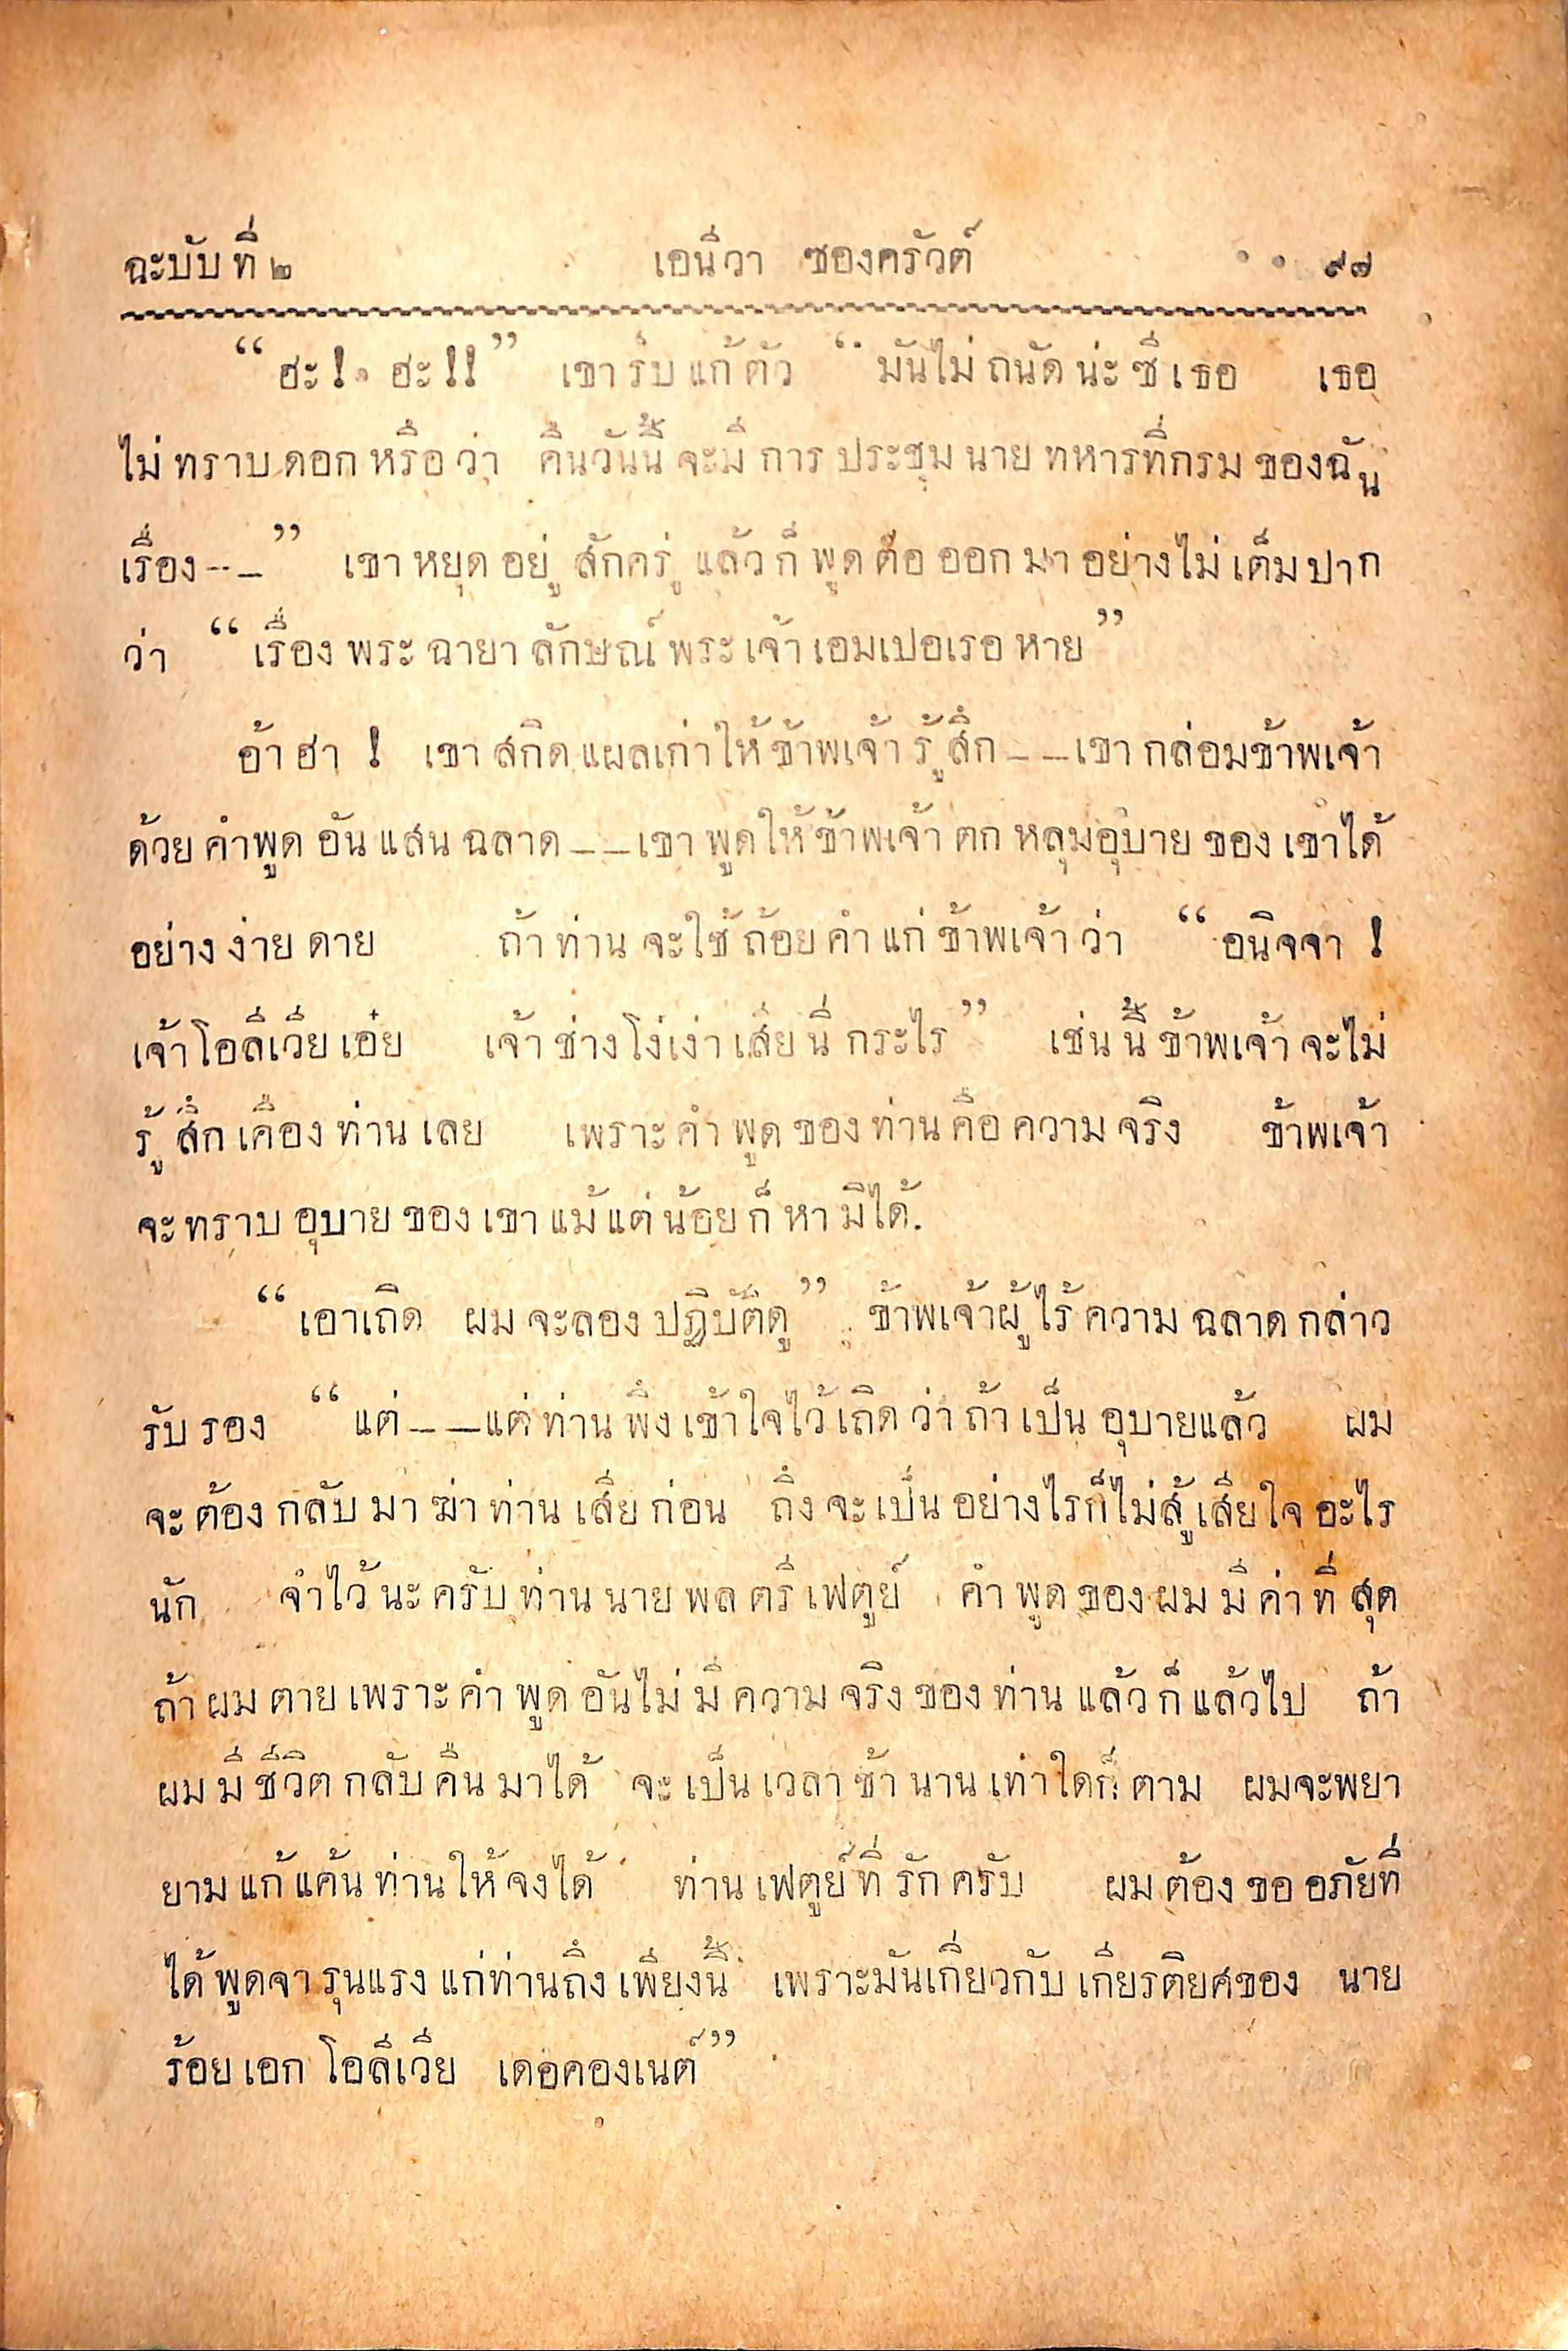 ฉะบับที่ ๒ เอนีวา ซองครัวต์ ๙๗
“ฮะ! ฮะ!!” เขารีบแก้ตัว “มันไม่ถนัดน่ะซีเธอ เธอ
ไม่ทราบดอกหรือว่า คืนวันนี้จะมีการประชุมนายทหารที่กรมของฉัน
เรื่อง---” เขาหยุดอยู่สักครู่ แล้วก็พูดต่อออกมาอย่างไม่เต็มปาก
ว่า “เรื่องพระฉายาลักษณ์พระเจ้าเอมเปอเรอหาย”
อ้าฮา ! เขาสกิดแผลเก่าให้ข้าพเจ้ารู้สึก--เขากล่อมข้าพเจ้า
ด้วยคำพูดอันแสนฉลาด--เขาพูดให้ข้าพเจ้าตกหลุมอุบายของเขาได้
อย่างง่ายดาย ถ้าท่านจะใช้ถ้อยคำแก่ข้าพเจ้าว่า “อนิจจา !
เจ้าโอลีเวียเอ๋ย เจ้าช่างโง่เง่าเสียนี่กระไร” เช่นนี้ข้าพเจ้าจะไม่
รู้สึกเคืองท่านเลย เพราะคำพูดของท่านคือความจริง ข้าพเจ้า
จะทราบอุบายของเขาแม้แต่น้อยก็หามิได้.
“เอาเถิด ผมจะลองปฏิบัติดู” ข้าพเจ้าผู้ไร้ความฉลาดกล่าว
รับรอง “แต่--แต่ท่านพึงเข้าใจไว้เถิดว่าถ้าเป็นอุบายแล้ว ผม
จะต้องกลับมาฆ่าท่านเสียก่อน ถึงจะเป็นอย่างไรก็ไม่สู้เสียใจอะไร
นัก จำไว้นะครับท่านนายพลตรีเฟตูย์ คำพูดของผมมีค่าที่สุด
ถ้าผมตายเพราะคำพูดอันไม่มีความจริงของท่านแล้วก็แล้วไป ถ้า
ผมมีชีวิตกลับคืนมาได้ จะเป็นเวลาช้านานเท่าใดก็ตาม ผมจะพยา
ยามแก้แค้นท่านให้จงได้ ท่านเฟตูย์ที่รักครับ ผมต้องขออภัยที่
ได้พูดจารุนแรงแก่ท่านถึงเพียงนี้ เพราะมันเกี่ยวกับเกียรติยศของ นาย
ร้อยเอกโอลีเวีย เดอคองเนต์”